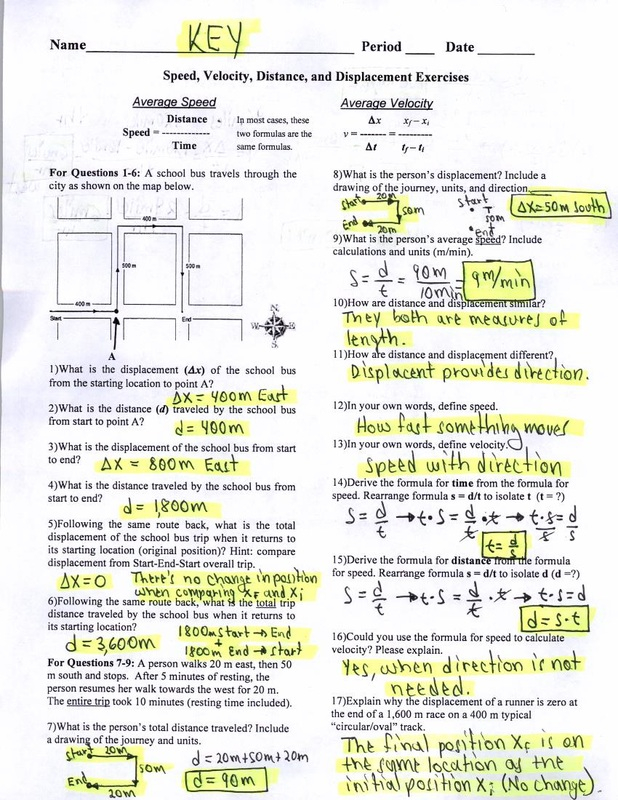 Name KEY Period ____ Date ________
Speed, Velocity, Distance, and Displacement Exercises
Average Speed
Distance
Speed = -------------
Time
In most cases, these
two formulas are the
same formulas.
Average Velocity
Δx xf – xi
v = ------- = ---------
Δt tf – ti
For Questions 1-6: A school bus travels through the
city as shown on the map below.
400 m
500 m
500 m
400 m
Start
End
N
W
E
S
A
1)What is the displacement (Δx) of the school bus
from the starting location to point A?
ΔX = 400m East
2)What is the distance (d) traveled by the school bus
from start to point A?
d = 400m
3)What is the displacement of the school bus from start
to end? ΔX = 800m East
4)What is the distance traveled by the school bus from
start to end?
d = 1,800m
5)Following the same route back, what is the total
displacement of the school bus trip when it returns to
its starting location (original position)? Hint: compare
displacement from Start-End-Start overall trip.
ΔX = 0 There's no change in position
when comparing XF and Xi
6)Following the same route back, what is the total trip
distance traveled by the school bus when it returns to
its starting location?
d = 3,600m
1800m Start → End
+
1800m End → Start
For Questions 7-9: A person walks 20 m east, then 50
m south and stops. After 5 minutes of resting, the
person resumes her walk towards the west for 20 m.
The entire trip took 10 minutes (resting time included).
7)What is the person's total distance traveled? Include
a drawing of the journey and units.
Start 20m
50m
End
20m
d = 20m+50m+20m
d = 90m
8)What is the person's displacement? Include a
drawing of the journey, units, and direction.
Start 20m
50m
End 20m
start
50m
end
ΔX=50m South
9)What is the person's average speed? Include
calculations and units (m/min).
S = d/t = 90m/10min = 9m/min
10)How are distance and displacement similar?
They both are measures of
length.
11)How are distance and displacement different?
Displacent provides direction.
12)In your own words, define speed.
How fast something moves
13)In your own words, define velocity.
Speed with direction
14)Derive the formula for time from the formula for
speed. Rearrange formula s = d/t to isolate t (t = ?)
S = d/t → t·S = d/t·t → t·s/s = d/s
t = d/s
15)Derive the formula for distance from the formula
for speed. Rearrange formula s = d/t to isolate d (d =?)
S = d/t → t·S = d/t·t → t·S=d
d = s·t
16)Could you use the formula for speed to calculate
velocity? Please explain.
Yes, when direction is not
needed.
17)Explain why the displacement of a runner is zero at
the end of a 1,600 m race on a 400 m typical
"circular/oval" track.
The final position XF is on
the same location as the
initial position Xi (No change).